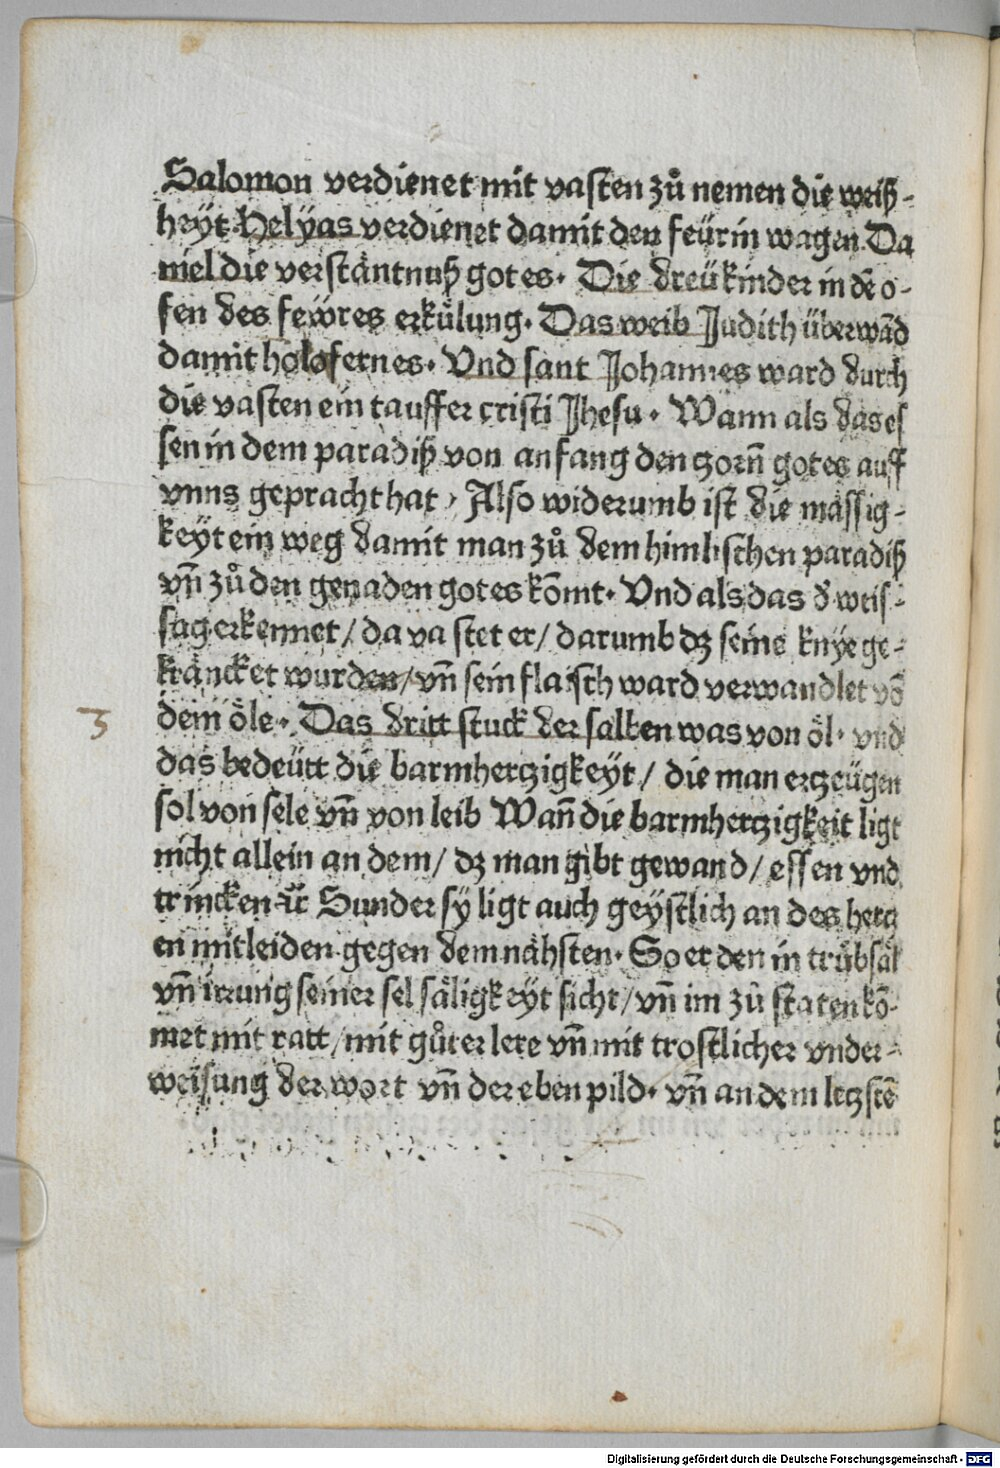 Salomon verdienet mit vasten zů nemen die weiß-
heyt. Helyas verdienet damit den feürin wagen Da
niel die verstäntnuß gotes. Die dreü kinder in dē o-
fen des feẅres erkůlung. Das weib Judith überwād
damit holofernes. Vnd sant Johannes ward durch
die vasten ein tauffer cristi Jhesu. Wann als das es
sen in dem paradiß von anfang den zorn̄ gotes auff
vnns gepracht hat, Also widerumb ist die mässig-
keyt ein weg damit man zů dem himlischen paradiß
vn̄ zů den genaden gotes kōmt. Vnd als das d̕ weis-
sag erkennet/ da vastet er/ darumb dz seine knye ge-
kräncket wurden/ vn̄ sein flaisch ward verwandlet vō
dem öle. Das dritt stuck der salben was von öl. vnd
das bedeütt die barmhertzigkeyt/ die man ertzeügen
sol von sele vn̄ von leib Wan̄ die barmhertzigkeit ligt
nicht allein an dem/ dz man gibt gewand/ essen vnd
trincken ꝛc̈ Sunder sy ligt auch geystlich an des hertz
en mitleiden gegen dem nähsten. So er den in trübsäl
vn̄ irrung seiner sel säligkeyt sicht/ vn̄ im zů staten kō-
met mit ratt/ mit gůter lere vn̄ mit trostlicher vnder-
weisung der wort vn̄ der eben pild. vn̄ an dem letzstē
3
Digitalisierung gefördert durch die Deutsche Forschungsgemeinschaft - DFG